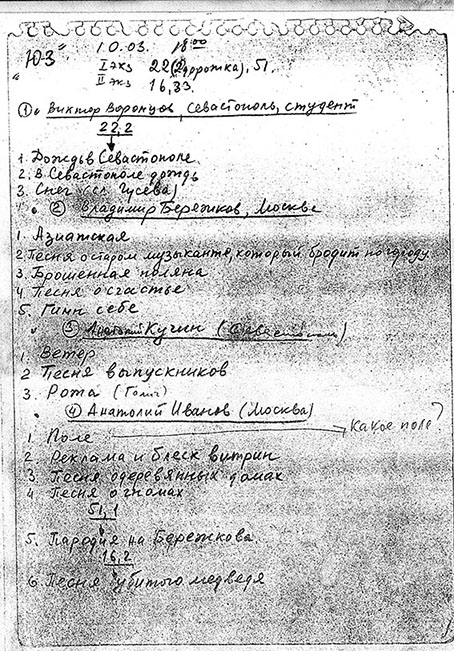 "ЮЗ" 10.03. 18⁰⁰
I экз 22(2дорожка), 51.
II экз 16,33.
① Виктор Воронцов, Севастополь, студент
22,2
1. Дождь в Севастополе
2. В Севастополе дождь
3. Снег (сл. Гусева)
② Владимир Бережков, Москва
1. Азиатская
2. Песня о старом музыканте, который бродит по городу
3. Брошенная поляна
4. Песня о счастье
5. Гимн себе
③ Анатолий Кучин (Севастополь)
1. Ветер
2 Песня выпускников
3. Рота (Голич)
④ Анатолий Иванов (Москва)
1. Поле Какое поле?
2 Реклама и блеск витрин
3. Песня о деревянных домах
4 Песня о гномах
51,1
5. Пародия на Бережкова
16,2
6 Песня убитого медведя